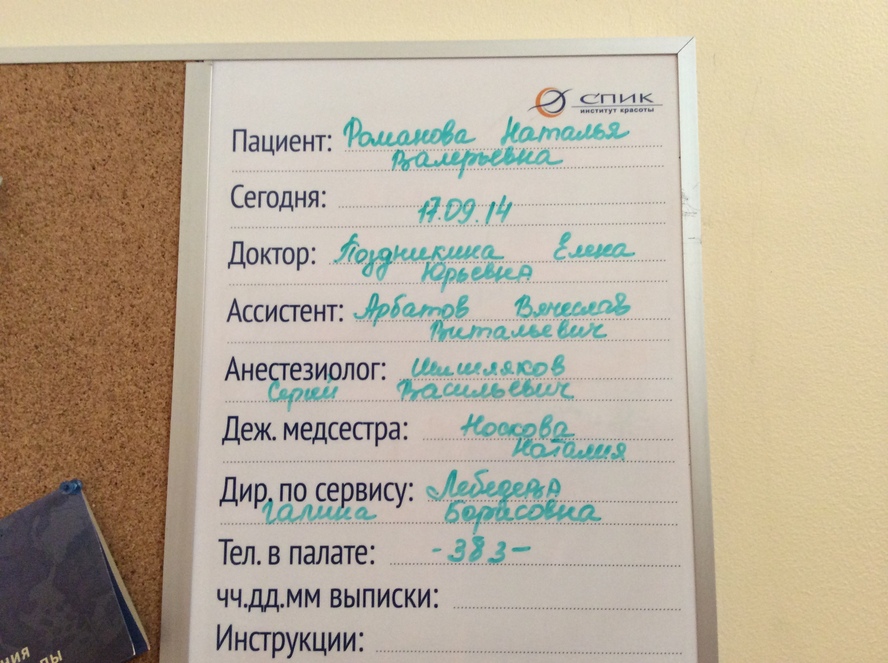 СПИК
институт красоты
Пациент: Романова Наталья
Валерьевна
Сегодня:
17.09.14
Доктор: Поздникина Елена
Юрьевна
Ассистент: Арбатов Вячеслав
Витальевич
Анестезиолог: Шишляков
Сергей Васильевич
Деж. медсестра: Носкова
Наталия
Дир. по сервису: Лебедева
Галина Борисовна
Тел. в палате: -383-
чч.дд.мм выписки:
Инструкции: